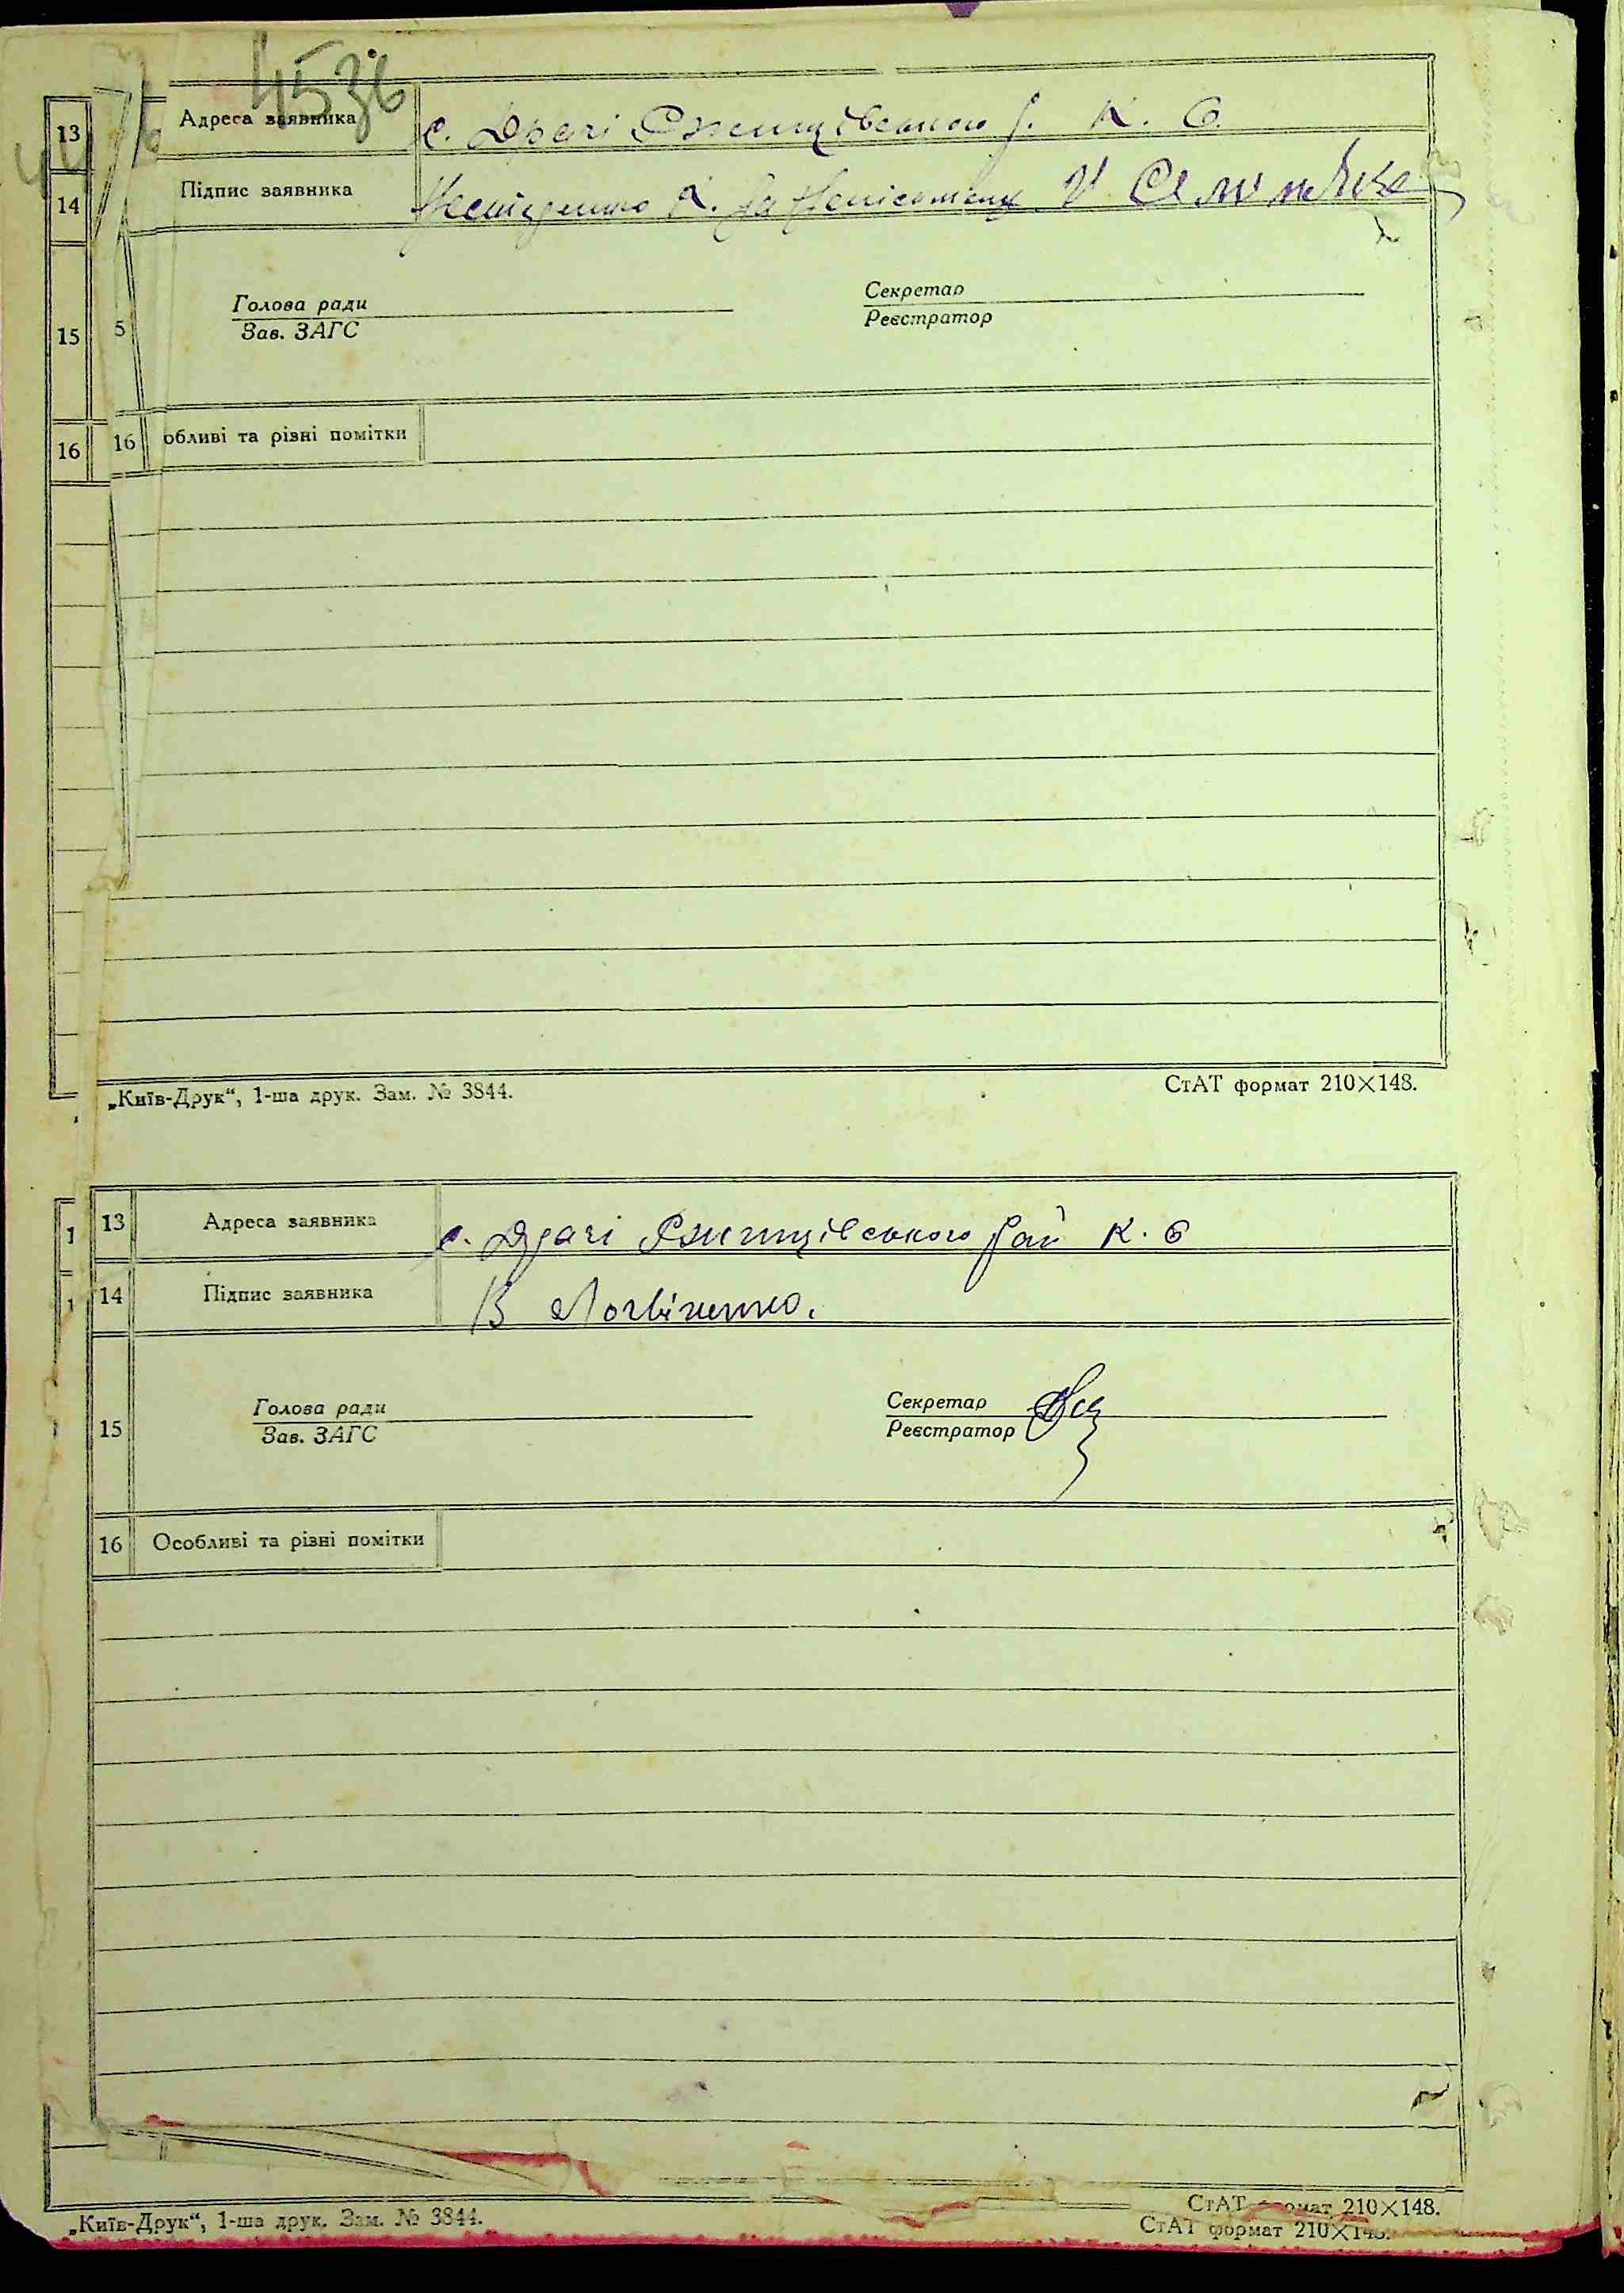 453б
13 Адреса заявника с. Драчі Ржищівського р. К. О.
14 Підпис заявника К. за
Голова ради Секретар
15 5 Зав. ЗАГС Реєстратор
16 16 обливі та різні помітки
„Київ-Друк“, 1-ша друк. Зам. № 3844. СтАТ формат 210×148.
1 13 Адреса заявника с. Драчі Ржищівського рай К. О
1 14 Підпис заявника В Логвіненко.
Голова ради Секретар
15 Зав. ЗАГС Реєстратор
16 Особливі та різні помітки
СтАТ формат 210×148.
„Київ-Друк“, 1-ша друк. Зам. № 3844. СтАТ формат 210×148.